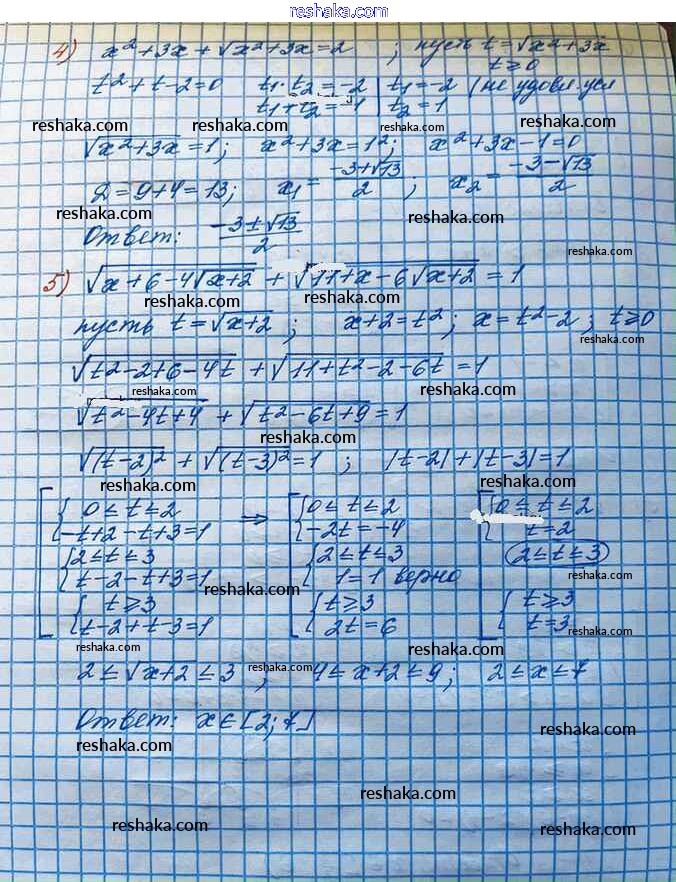 reshaka.com
4) x² + 3x + √(x² + 3x) = 2 ; пусть t = √(x² + 3x)
t ≥ 0
t² + t - 2 = 0 t₁ · t₂ = -2 | t₁ = -2 / не удовл. усл
t₁ + t₂ = -1 | t₂ = 1
reshaka.com reshaka.com reshaka.com
√(x² + 3x) = 1; x² + 3x = 1²; x² + 3x - 1 = 0
D = 9 + 4 = 13; x₁ = (-3 + √13)/2 ; x₂ = (-3 - √13)/2
reshaka.com reshaka.com reshaka.com
Ответ: (-3 ± √13)/2
reshaka.com reshaka.com
5) √(x + 6 - 4√(x + 2)) + √(11 + x - 6√(x + 2)) = 1
reshaka.com reshaka.com
пусть t = √(x + 2) ; x + 2 = t²; x = t² - 2; t ≥ 0
reshaka.com
√(t² - 2 + 6 - 4t) + √(11 + t² - 2 - 6t) = 1
reshaka.com reshaka.com
√(t² - 4t + 4) + √(t² - 6t + 9) = 1
reshaka.com
√((t - 2)²) + √((t - 3)²) = 1 ; |t - 2| + |t - 3| = 1
reshaka.com
[ { 0 ≤ t ≤ 2 ⇒ [ { 0 ≤ t ≤ 2 [ { 0 ≤ t ≤ 2
-t + 2 - t + 3 = 1 -2t = -4 t = 2
{ 2 ≤ t ≤ 3 { 2 ≤ t ≤ 3 2 ≤ t ≤ 3
t - 2 - t + 3 = 1 1 = 1 верно
reshaka.com reshaka.com
{ t ≥ 3 { t ≥ 3 { t ≥ 3
t - 2 + t - 3 = 1 2t = 6 t = 3
reshaka.com reshaka.com reshaka.com
2 ≤ √(x + 2) ≤ 3 ; 4 ≤ x + 2 ≤ 9; 2 ≤ x ≤ 7
reshaka.com reshaka.com reshaka.com
Ответ: x ∈ [2; 7]
reshaka.com reshaka.com
reshaka.com
reshaka.com reshaka.com